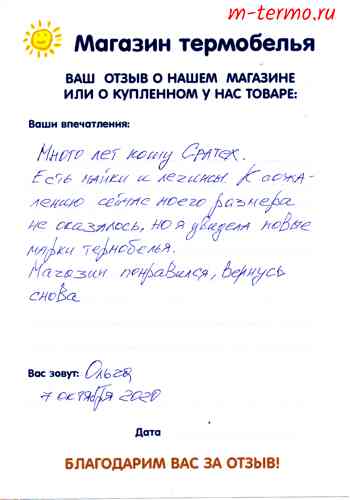 m-termo.ru
Магазин термобелья
ВАШ ОТЗЫВ О НАШЕМ МАГАЗИНЕ
ИЛИ О КУПЛЕННОМ У НАС ТОВАРЕ:
Ваши впечатления:
Много лет ношу Сратех.
Есть майки и легинсы. К сожа-
лению сейчас моего размера
не оказалось, но я увидела новые
марки термобелья.
Магазин понравился, вернусь
снова
Вас зовут: Ольга
7 октября 2020
Дата
БЛАГОДАРИМ ВАС ЗА ОТЗЫВ!